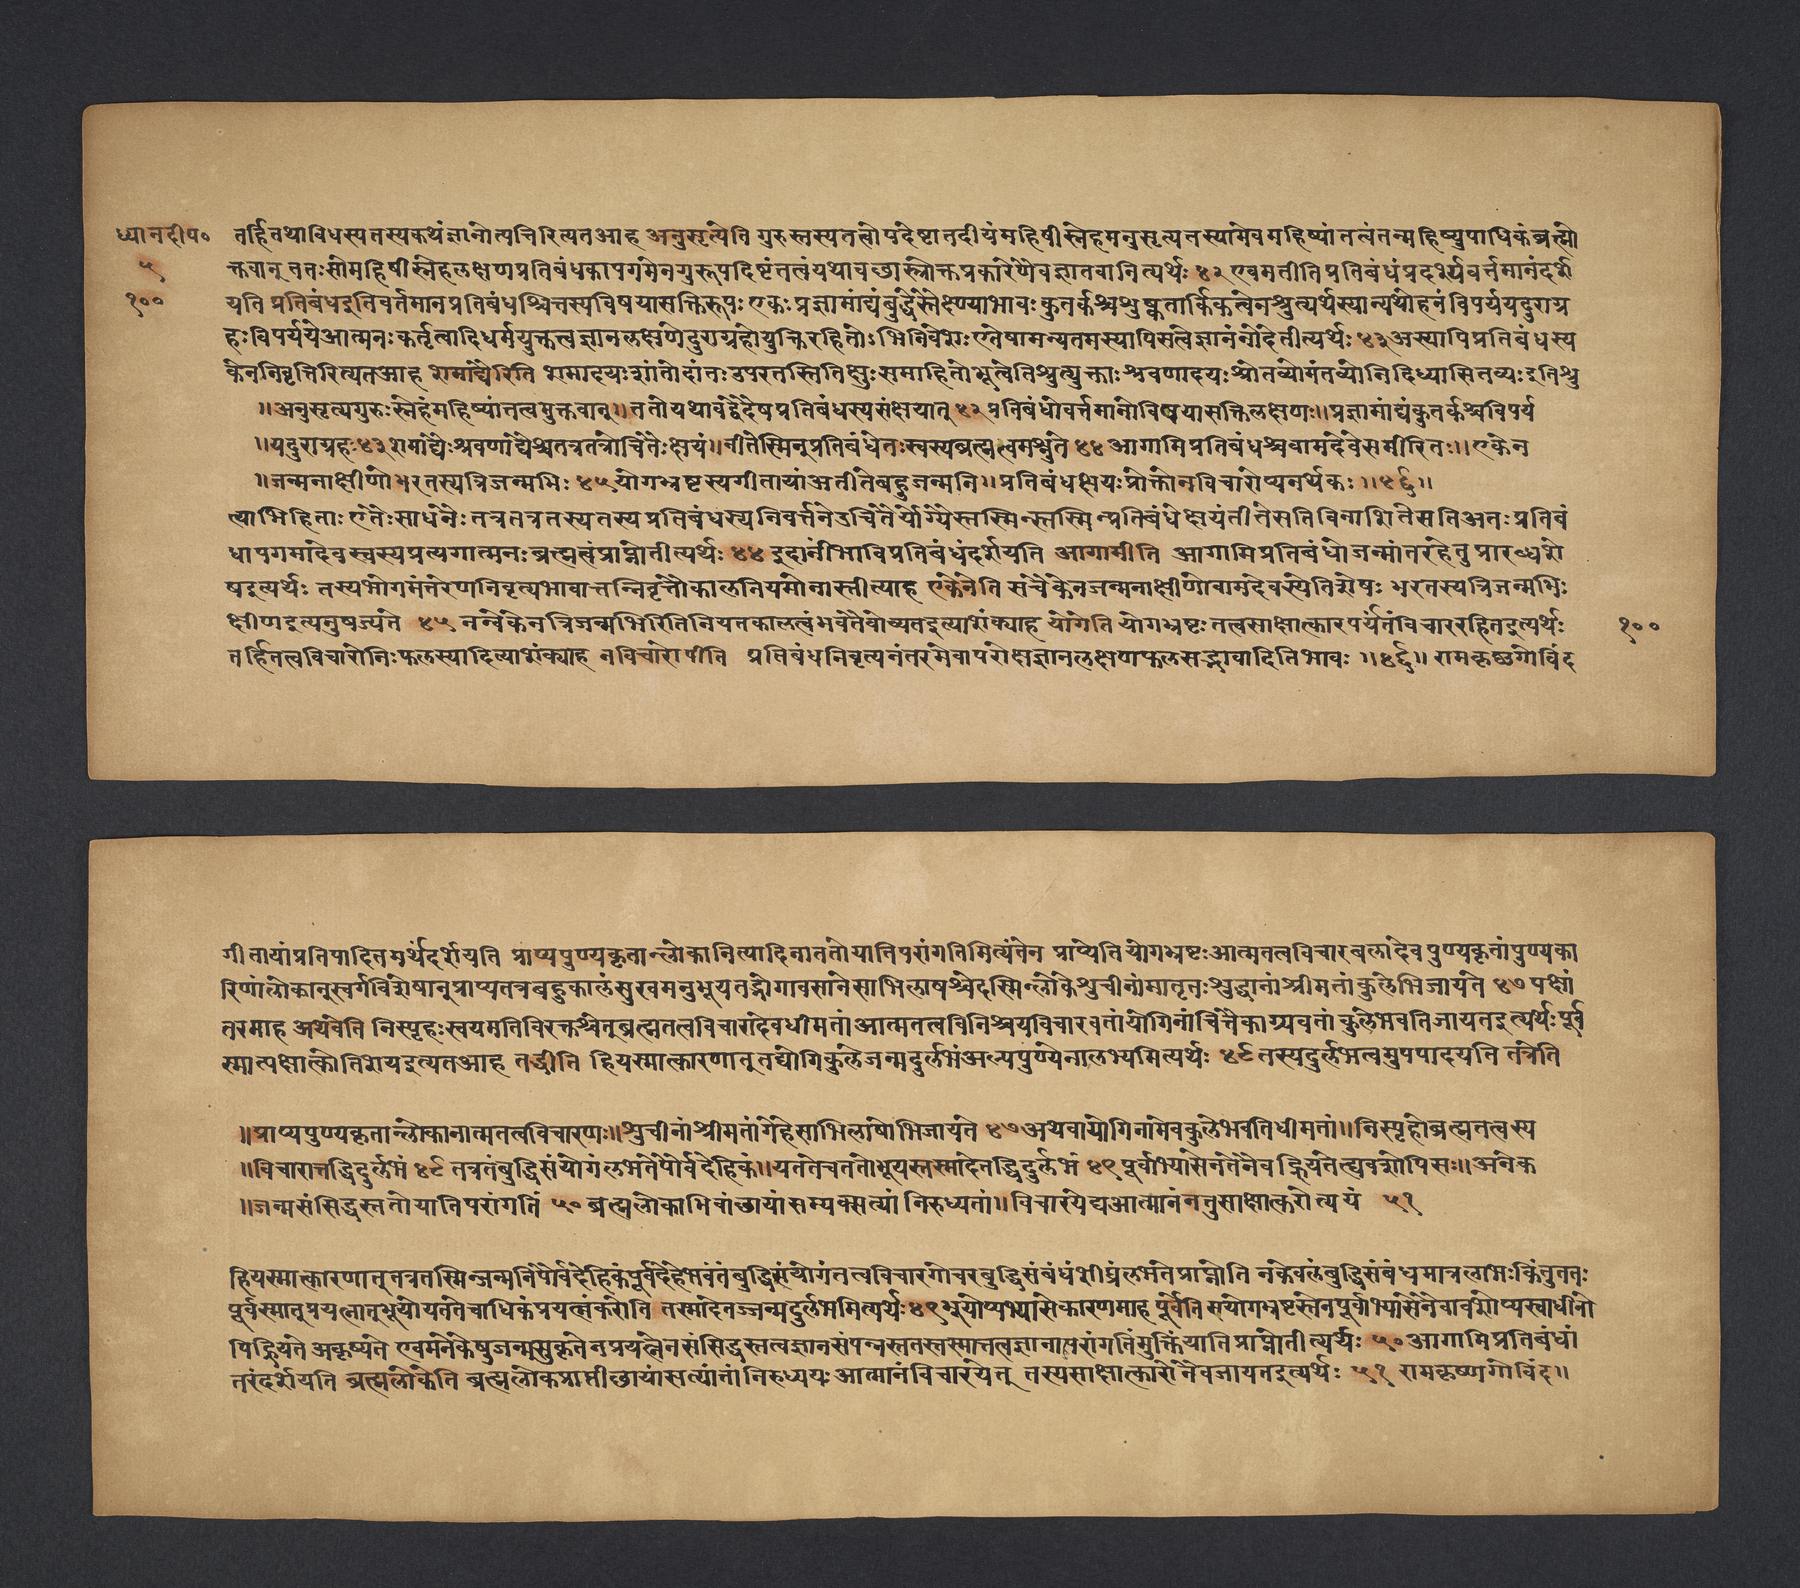 ध्यानदीप० तर्हितथाविधस्यतस्यकथंज्ञानोत्पत्तिरित्यतआह अनुसृत्येति गुरुस्तस्यतत्वोपदेष्टातदीयंमहिषीस्नेहमनुसृत्यतस्यामेवमहिष्यांतत्वंतन्महिष्युपाधिकंब्रह्मो
५ क्तवान् ततःसोमहिषीस्नेहलक्षणप्रतिबंधकापगमेनगुरूपदिष्टंतत्वंयथावछास्त्रोक्तप्रकारेणैवज्ञातवानित्यर्थः ४२ एवमतीतिप्रतिबंधंप्रदर्श्यवर्त्तमानंदर्श
१०० यति प्रतिबंधइतिवर्तमानप्रतिबंधश्चित्तस्यविषयासक्तिरूपः एकः प्रज्ञामांद्यंबुद्धेस्तैक्ष्ण्याभावः कुतर्कश्चशुष्कतार्किकत्वेनश्रुत्यर्थस्यान्यथोहनं विपर्ययदुराग्र
हः विपर्यये आत्मनः कर्तृत्वादिधर्मयुक्तत्वज्ञानलक्षणेदुराग्रहोयुक्तिरहितोऽभिनिवेशः एतेषामन्यतमस्यापिसत्वेज्ञानंनोदेतीत्यर्थः ४३ अस्यापिप्रतिबंधस्य
केननिवृत्तिरित्यतआह शमाद्यैरिति शमादयः शांतोदांतः उपरतस्तितिक्षुः समाहितोभूत्वेतिश्रुत्युक्ताः श्रवणादयः श्रोतव्योमंतव्योनिदिध्यासितव्यः इतिश्रु
॥अनुसृत्यगुरुः स्नेहंमहिष्यांतत्वमुक्तवान्॥ ततोयथावद्वेदैषप्रतिबंधस्यसंक्षयात् ४२ प्रतिबंधोवर्त्तमानोविषयासक्तिलक्षणः॥प्रज्ञामांद्यंकुतर्कश्चविपर्य
॥यदुराग्रहः ४३ शमाद्यैः श्रवणाद्यैश्चतत्रतत्रोचितैः क्षयं॥नीतेस्मिन्प्रतिबंधेतः स्वस्यब्रह्मत्वमश्नुते ४४ आगामिप्रतिबंधश्चवामदेवेसमीरितः॥एकेन
॥जन्मनाक्षीणोभरतस्यत्रिजन्मभिः ४५ योगभ्रष्टस्यगीतायांअतीतेबहुजन्मनि॥प्रतिबंधक्षयः प्रोक्तोनविचारोप्यनर्थकः ॥४६॥
त्याभिहिताः एतैः साधनैः तत्रतत्रतस्यतस्यप्रतिबंधस्यनिवर्त्तनेउचितैर्योग्यैस्तस्मिन्स्तस्मिन्प्रतिबंधेक्षयंनीतेसतिविनाशितेसतिअतः प्रतिबं
धापगमादेवस्वस्यप्रत्यगात्मनः ब्रह्मत्वंप्राप्नोतीत्यर्थः ४४ इदानींभाविप्रतिबंधंदर्शयति आगामीति आगामिप्रतिबंधोजन्मांतरहेतुप्रारब्धशे
षइत्यर्थः तस्यभोगमंतरेणनिवृत्यभावात्तन्निवृत्तौकालनियमोनास्तीत्याह एकेनेति सचैकेनजन्मनाक्षीणोवामदेवस्येतिशेषः भरतस्यत्रिजन्मभिः
क्षीणइत्यनुषज्यते ४५ नन्वेकेनत्रिजन्मभिरितिनियतकालत्वंभवतैवोच्यतइत्याशंक्याह योगेति योगभ्रष्टः तत्वसाक्षात्कारपर्यंतंविचाररहितइत्यर्थः १००
तर्हितत्वविचारोनिःफलस्यादित्याशंक्याह नविचारोपीति प्रतिबंधनिवृत्यनंतरमेवापरोक्षज्ञानलक्षणफलसद्भावादितिभावः ॥४६॥ रामकृष्णगोविंद
गीतायांप्रतिपादितमर्थंदर्शयति प्राप्यपुण्यकृतान्लोकानित्यादिनाततोयातिपरांगतिमित्यंतेन प्राप्येति योगभ्रष्टः आत्मतत्वविचारबलादेवपुण्यकृतांपुण्यका
रिणांलोकान्स्वर्गविशेषान्प्राप्यतत्रबहुकालंसुखमनुभूयतद्भोगावसानेसाभिलाषश्चेदस्मिन्लोकेशुचीनांमातृतः शुद्धानांश्रीमतांकुलेभिजायते ४७ पक्षां
तरमाह अथवेति निस्पृहः स्वयमतिविरक्तश्चेत्ब्रह्मतत्वविचारादेवधीमतां आत्मतत्वविनिश्चयविचारवतांयोगिनांचित्तैकाग्र्यवतां कुलेभवतिजायतइत्यर्थः पूर्व
स्मात्पक्षात्कोतिशयइत्यतआह तद्धीति हियस्मात्कारणात्तद्योगिकुलेजन्मदुर्लभंअल्पपुण्येनालभ्यमित्यर्थः ४८ तस्यदुर्लभत्वमुपपादयति तत्रेति
॥प्राप्यपुण्यकृतान्लोकानात्मतत्वविचारणः॥शुचीनांश्रीमतांगेहेसाभिलाषोभिजायते ४७ अथवायोगिनामेवकुलेभवतिधीमतां॥निस्पृहोब्रह्मतत्वस्य
॥विचारात्तद्धिदुर्लभं ४८ तत्रतंबुद्धिसंयोगंलभतेपौर्वदेहिकं॥यततेचततोभूयस्तस्मादेतद्धिदुर्लभं ४९ पूर्वाभ्यासेनतेनैवह्रियतेह्यवशोपिसः॥अनेक
॥जन्मसंसिद्धस्ततोयातिपरांगतिं ५० ब्रह्मलोकाभिवांछायांसम्यक्सत्यां निरुध्यतां॥विचारयेद्यआत्मानंनतुसाक्षात्करोत्ययं ५१
हियस्मात्कारणात्तत्रतस्मिन्जन्मनिपौर्वदेहिकंपूर्वदेहेभवंतंबुद्धिसंयोगंतत्वविचारगोचरबुद्धिसंबंधंशीघ्रंलभतेप्राप्नोति नकेवलंबुद्धिसंबंधमात्रलाभः किंतुततः
पूर्वस्मात्प्रयत्नात्भूयोयततेचाधिकंप्रयत्नंकरोति तस्मादेतज्जन्मदुर्लभमित्यर्थः ४९ भूयोप्यभ्यासेकारणमाह पूर्वेति सयोगभ्रष्टस्तेनपूर्वाभ्यासेनैवावशोप्यस्वाधीनो
पिह्रियते अकृष्यते एवमनेकेषुजन्मसुकृतेनप्रयत्नेनसंसिद्धस्तत्वज्ञानसंपन्नस्ततस्तस्मात्तत्वज्ञानात्परांगतिंमुक्तिंयातिप्राप्नोतीत्यर्थः ५० आगामिप्रतिबंधां
तरंदर्शयति ब्रह्मलोकेति ब्रह्मलोकप्राप्तीछायांसत्यांतांनिरुध्ययः आत्मानंविचारयेत् तस्यसाक्षात्कारोनैवजायतइत्यर्थः ५१ रामकृष्णगोविंद॥